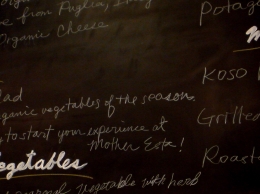 e from Puglia,
Organic Cheese
lad
ganic vegetables of the season.
y to start your experience at
Mother Esta!
egetables
seasonal vegetable with herb
Potag
M
Koso
Grilled
Roast